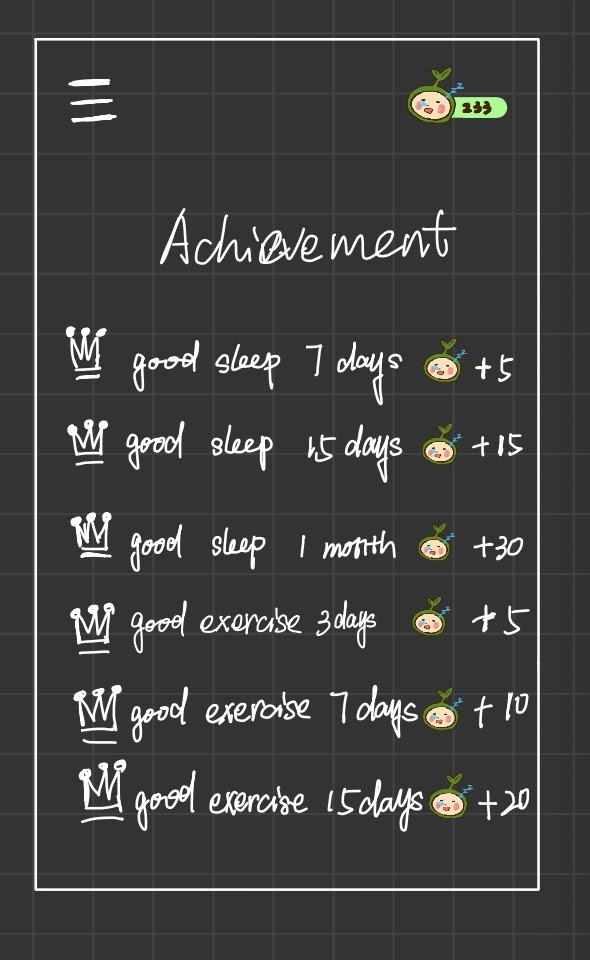 233
Achievement
good sleep 7 days +5
good sleep 15 days +15
good sleep 1 month +30
good exercise 3days +5
good exercise 7days +10
good exercise 15days +20